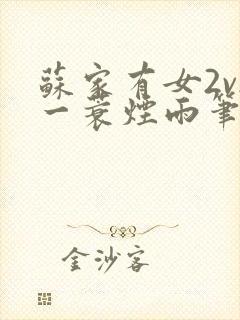 蘇家有女2v
一蓑煙雨筆
金沙客